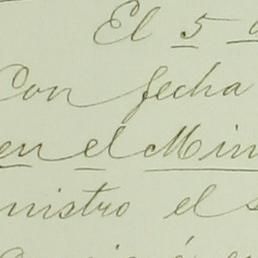 El 5
Con fecha
en el Min
nistro el